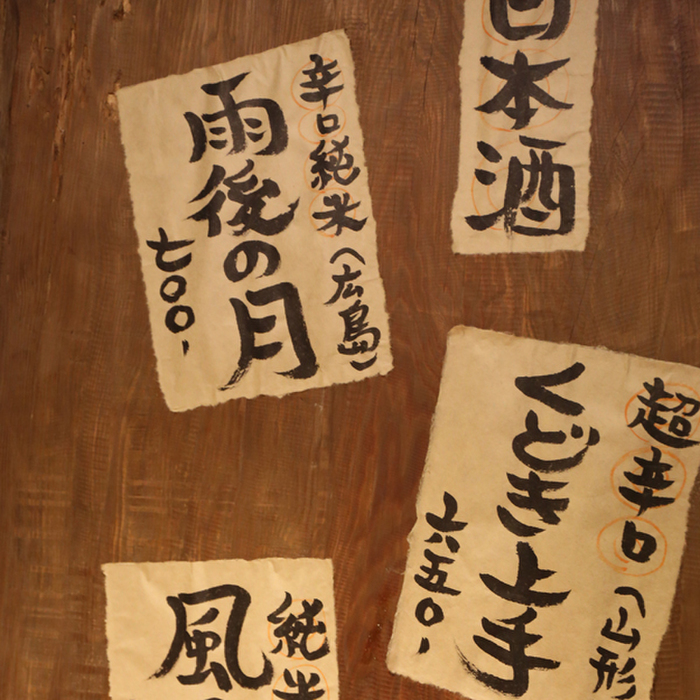 日本酒
辛口純米(広島)
雨後の月
七〇〇、
超辛口(山形
くどき上手
六五〇、
純米
風